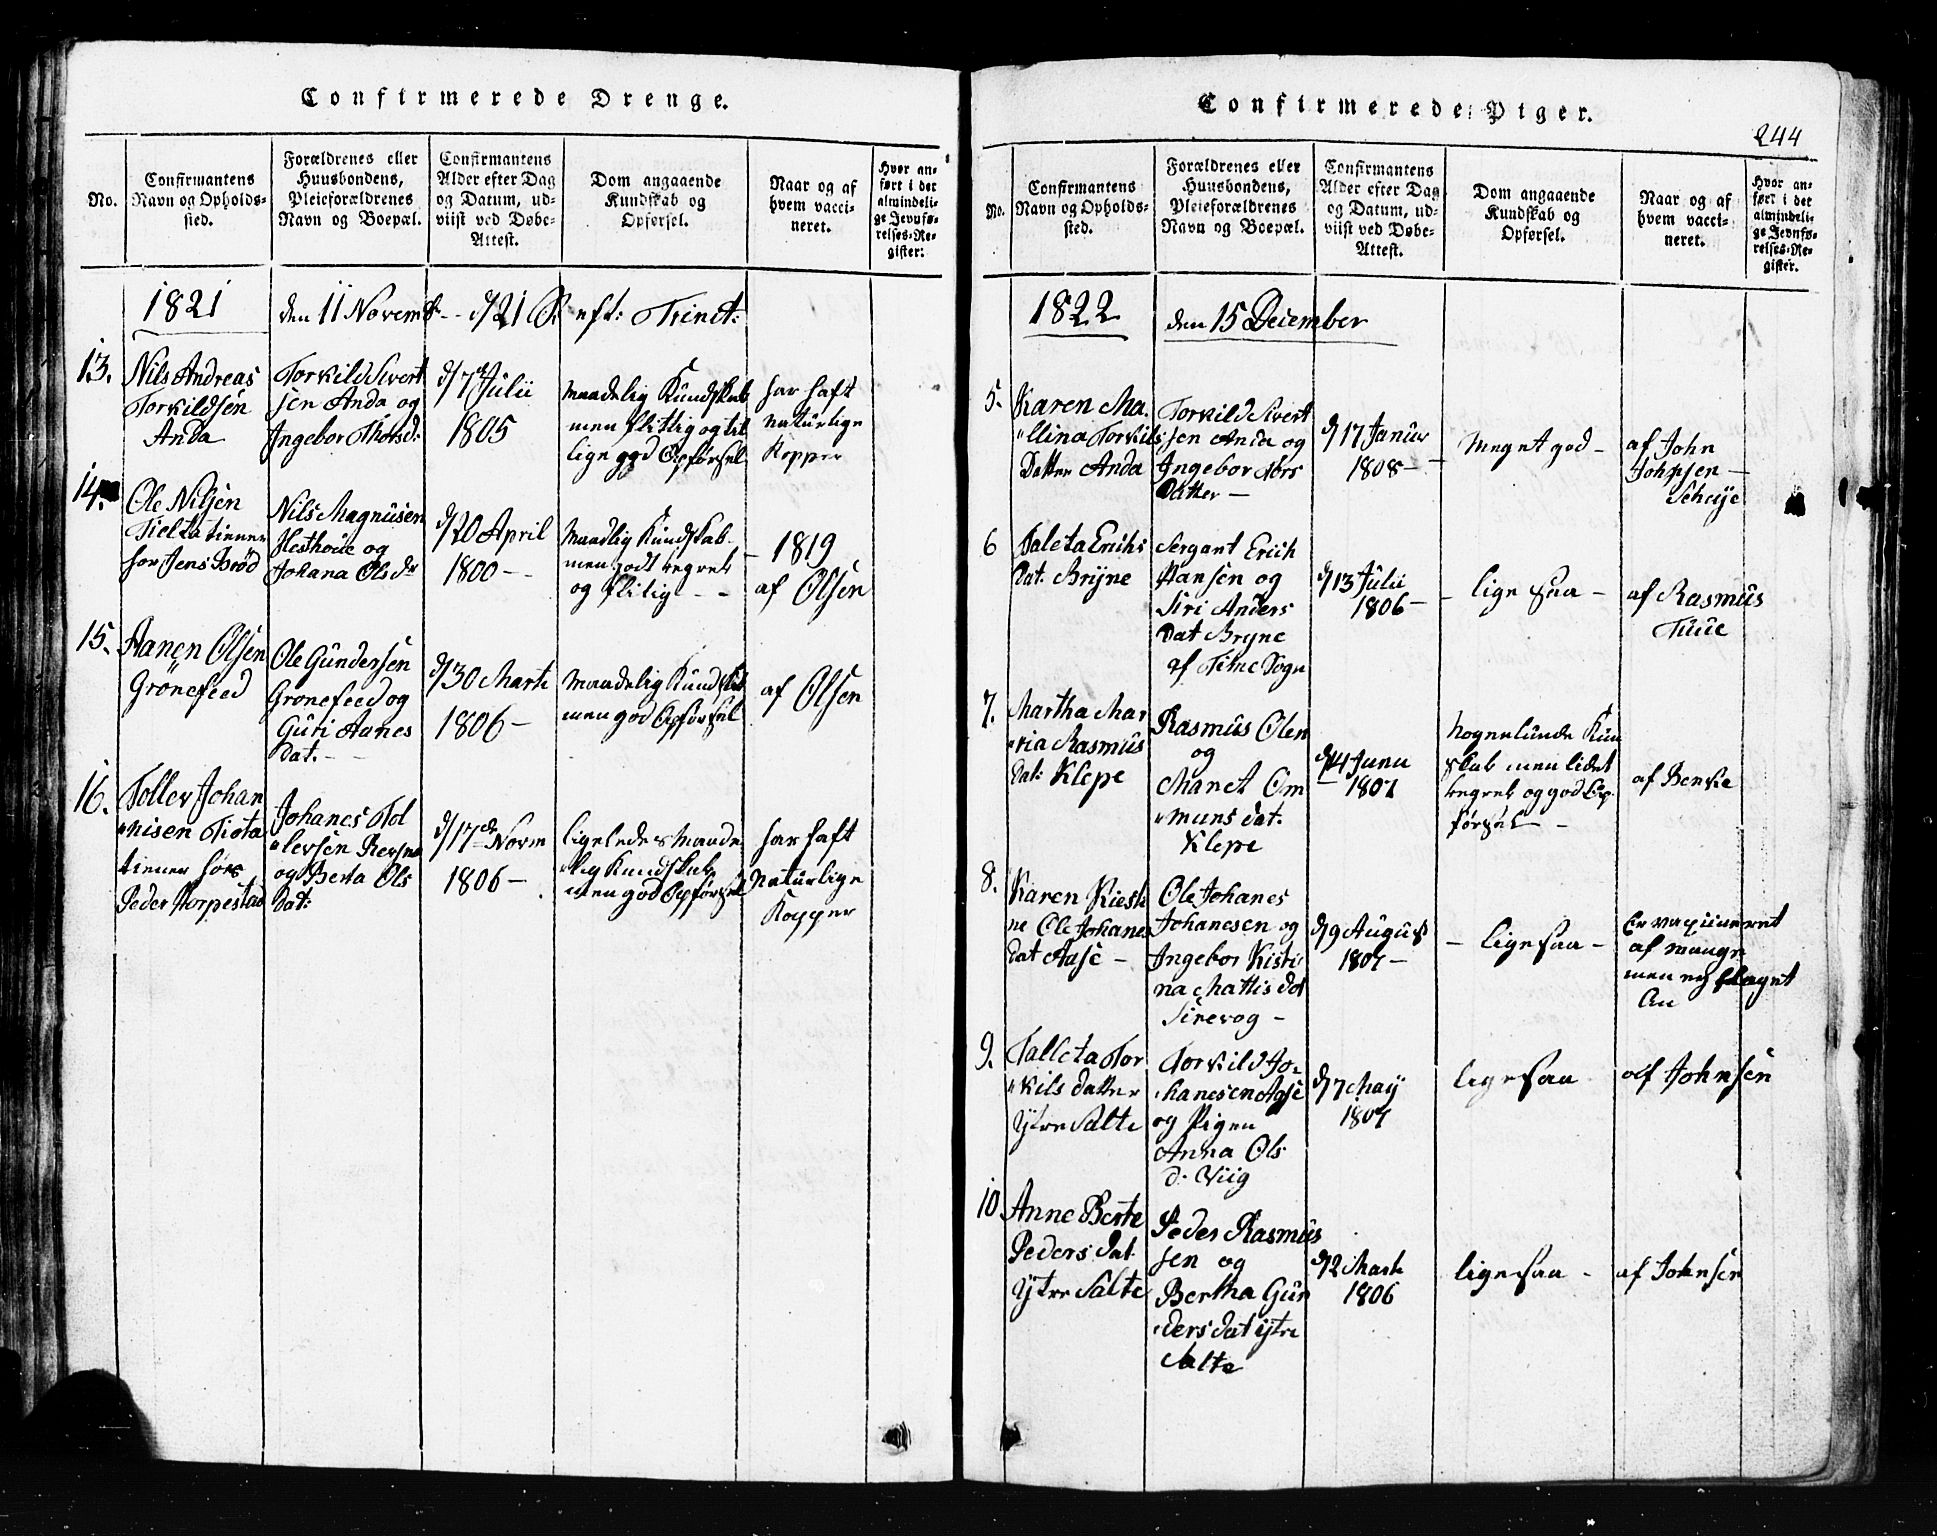 Confirmerede Drenge.
No.
Confirmantens
Navn og Opholds-
sted.
Forældrenes eller
Huusbondens,
Pleieforældrenes
Navn og Boepæl.
Confirmantens
Alder efter Dag
og Datum, ud-
viist ved Døbe-
Attest.
Dom angaaende
Kundskab og
Opførsel.
Naar og af
hvem vacci-
neret.
Hvor an-
ført i det
almindeli-
ge Jevnfø-
relses-Re-
gister.
1821
den 11 Novemb - d/21 S. eft: Trinit:
13.
Nils Andreas
Torkildsen
Anda
Torkild Sivert
sen Anda og
Ingebor Thorsd:
d/7de Julii
1805
Maadelig Kundskab
men flitlig og til
lige god Opførsel
har haft
naturlige
Kopper
14.
Ole Nilsen
Tielta tiener
hos Jens Brød
Nils Magnusen
Hesthoue og
Johana Ols Dr
d/20 April
1800 -
Maadlig Kundskab
men godt begreb
og flitig - -
- 1819
af Olsen
15.
Aanen Olsen
Grønefeed
Ole Gundersen
Gronefeed og
Guri Aanes
Dat. -
d/30 Marti
1806 -
Maadelig Kundskab
men god Opførsel
af Olsen
16.
Toller Johan
nisen Tiøta
tiener hos
Peder Horpestad
Johanes Tol
lersen
og Berta Ols
Dat:
d/17de Novm
1806 -
ligeledes Maade
lig Kundskab
men god Opførsel
har haft
Naturlige
Kopper
Confirmerede Piger.
244
No.
Confirmantens
Navn og Opholds-
sted.
Forældrenes eller
Huusbondens,
Pleieforældrenes
Navn og Boepæl.
Confirmantens
Alder efter Dag
og Datum, ud-
viist ved Døbe-
Attest.
Dom angaaende
Kundskab og
Opførsel.
Naar og af
hvem vacci-
neret.
Hvor an-
ført i det
almindeli-
ge Jevnfø-
relses-Re-
gister.
1822
den 15 December
5.
Karen Ma
llina Torkils
Datter Anda
Torkild Sivert
sen Anda og
Ingebor Tors
Datter -
d/17 Januar
1808 -
Meget god -
af John
Johnsen -
Schuje
6
Taleta Erichs
Dat: Bryne
Sergant Erich
Hansen og
Siri Anders
Dat Bryne
af Time Sogn
d/13 Julii
1806 -
- lige saa -
af Rasmus
Tuue
7.
Martha Mar
ria Rasmus
Dat: Klepe
Rasmus Olen
og
Manet Om
muns dat.
Klepe
d/4 Junu
- 1807
Nogenlunde Kun
skab men lidet
begreb og god Op
førsel -
af Benke
8.
Karen Kiesti
ne Ole Johanes
Dat Aase -
Ole Johanes
Johanesen og
Ingebor Kisti
na Mattis Dat
Sirevog -
d/9 August
1807 -
- lige saa -
Er vaccineret
af mange
men ej slaget
An
9.
Talleta Tor
kils datter
Ytre Salte
Torkild Jo
hanesen Aase
og Pigen
Anna Ols
d. Viig
d/7 Maij
1807
lige saa
af Johnsen
10
Anne Berte
Peders Dat
Ytre Salte
Peder Rasmus
sen og
Bertha Gun
ders dat ytre
Salte
d/2 Marti
1806
lige saa -
af Johnsen